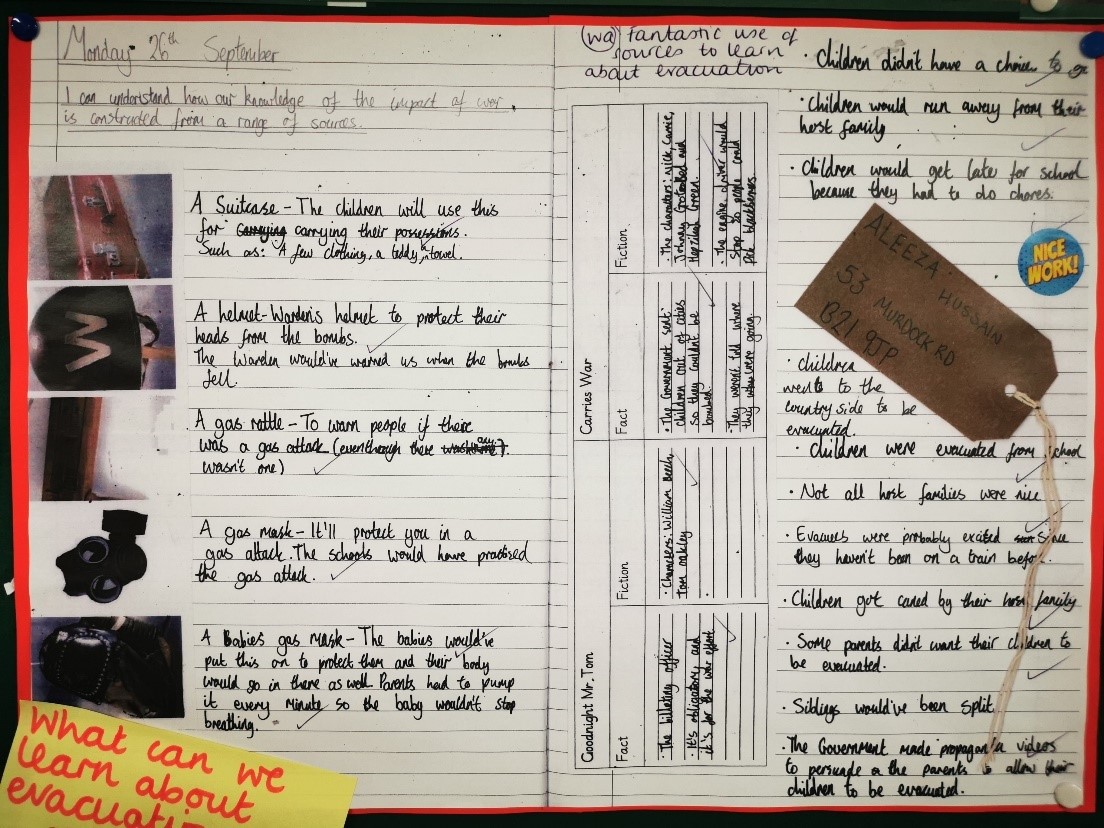 Monday 26th September
I can understand how our knowledge of the impact of war,
is constructed from a range of sources.
A Suitcase - The children will use this
for carrying their possessions.
Such as: A few clothing, a teddy, a towel.
A helmet - Warden's helmet to protect their
heads from the bombs.
The Warden would've warned us when the bombs
fell.
A gas rattle - To warn people if there
was a gas attack (eventhough there
wasn't one)
A gas mask - It'll protect you in a
gas attack. The schools would have practised
the gas attack.
A Babies gas mask - The babies would've
put this on to protect them and their body
would go in there as well. Parents had to pump
it every minute so the baby wouldn't stop
breathing.
What can we
learn about
(wa) Fantastic use of
sources to learn
about evacuation
Goodnight Mr. Tom
Fact
· The billeting officer
· It's obligatory and
it's for the war effort.
Fiction
· Characters: William Beech,
Tom Oakley
Carries War
Fact
· The Government sent
children out of cities
so they couldn't be
bombed.
· They weren't told where
they were going.
Fiction
· The characters: Nick, Carrie,
Hepzibah Green.
· The engine driver would
stop so people could
pick blackberries.
· Children didn't have a choice to go
· Children would run away from their
host family
· Children would get late for school
because they had to do chores.
NICE
WORK!
ALEEZA HUSSAIN
53 MURDOCK RD
B21 9JP
· children
went to the
country side to be
evacuated.
· Children were evacuated from school
· Not all host families were nice
· Evacuees were probably excited since
they haven't been on a train before.
· Children got caned by their host family
· Some parents didn't want their children to
be evacuated.
· Siblings would've been split.
· The Government made propaganda videos
to persuade the parents to allow their
children to be evacuated.